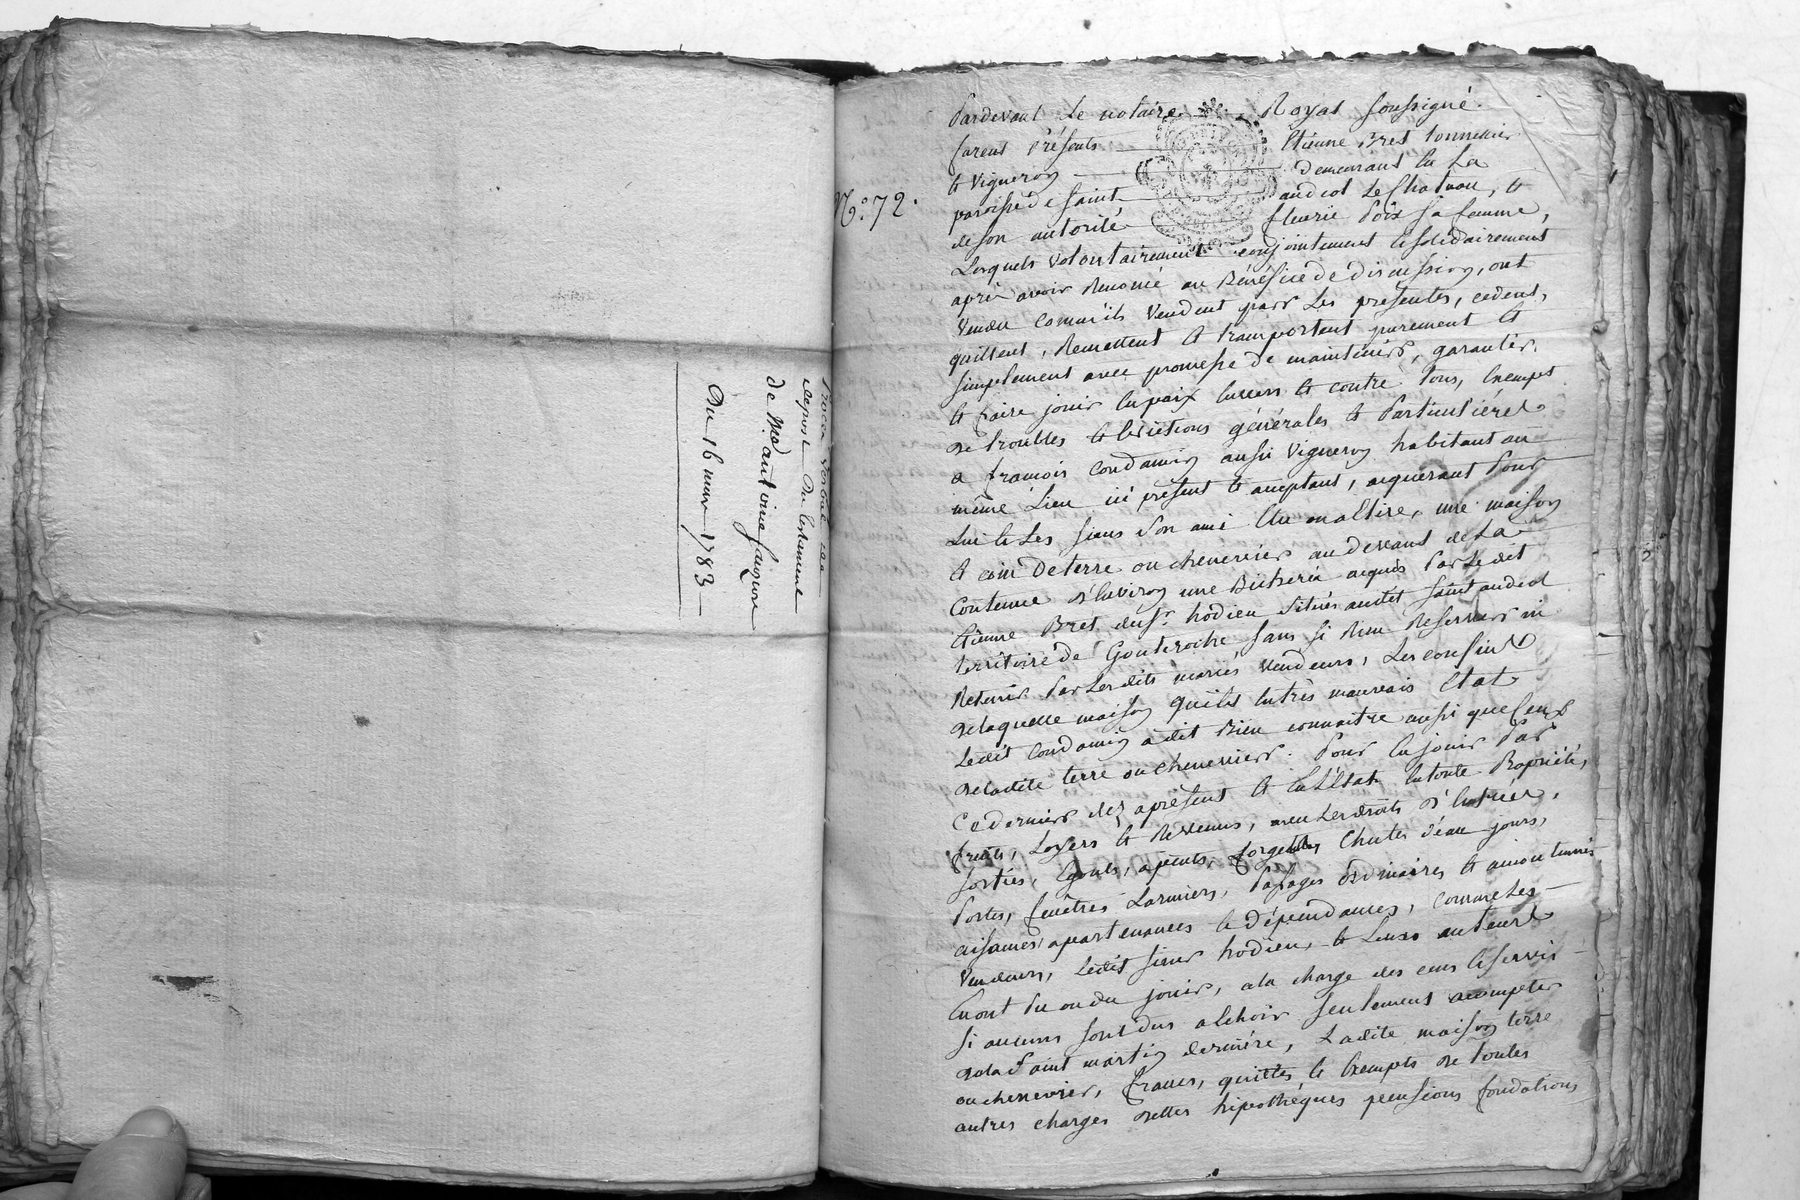 Procès verbal de
depost du testament
de Me. antoine faurure
Du 16 mars 1783
No. 72.
Pardevant Le notaire Royal soussigné.
furent Présents Etienne Bret tonnelier
et vigneron demeurant en La
paroisse de saint andeol Le Chateau, et
de son autorité fleurie Poix sa femme,
Lesquels volontairement conjointement et solidairement
après avoir Renoncé au Bénéfice de discussion, ont
vendu comm'ils vendent par Les presentes, cedent,
quittent, Remettent et transportent purement et
simplement avec promesse de maintenir, garantir
et faire jouir en paix envers et contre tous, Exempt
de troubles et évictions générales et Particulières
a francois Condamin aussi vigneron habitant au
même Lieu ici présent et acceptant, acquerant Pour
Lui et Les siens Son ami une maison
et coin De terre ou chenevier au devant de La
Contenue d'Environ une Bicherée acquis Par Le dit
Etienne Bret du sr. hodieu situés audit saint andeol
territoire de Gouteroche sans si Rien Reserver ni
Retenir Par Lesdits mariés vendeurs, Les confins
de laquelle maison qui est en très mauvais Etat
Ledit Condamin a dit Bien connaitre aussi que ceux
de ladite terre ou chenevier. Pour en jouir Par
Ce dernier dez apresent et en l'Etat en toute Propriété,
fruits, Loyers et Revenus, avec Les droits d'Entrées,
sorties, Egouts, apents, forgets, Chutes d'eau jours,
Portes, fenêtres Larmiers, Passages ordinaires et accoutumés
aisances apartenances et dépendances, comme Les
vendeurs, Ledit sieur hodieu, et Leurs auteurs
En ont Pu ou du jouir, a la charge des cens et servis
si aucuns sont dus a Echoir seulement a compter
de la Saint martin dernière, Ladite maison terre
ou chenevier, francs, quittes et Exempts de toutes
autres charges dettes hipothéques pensions fondations